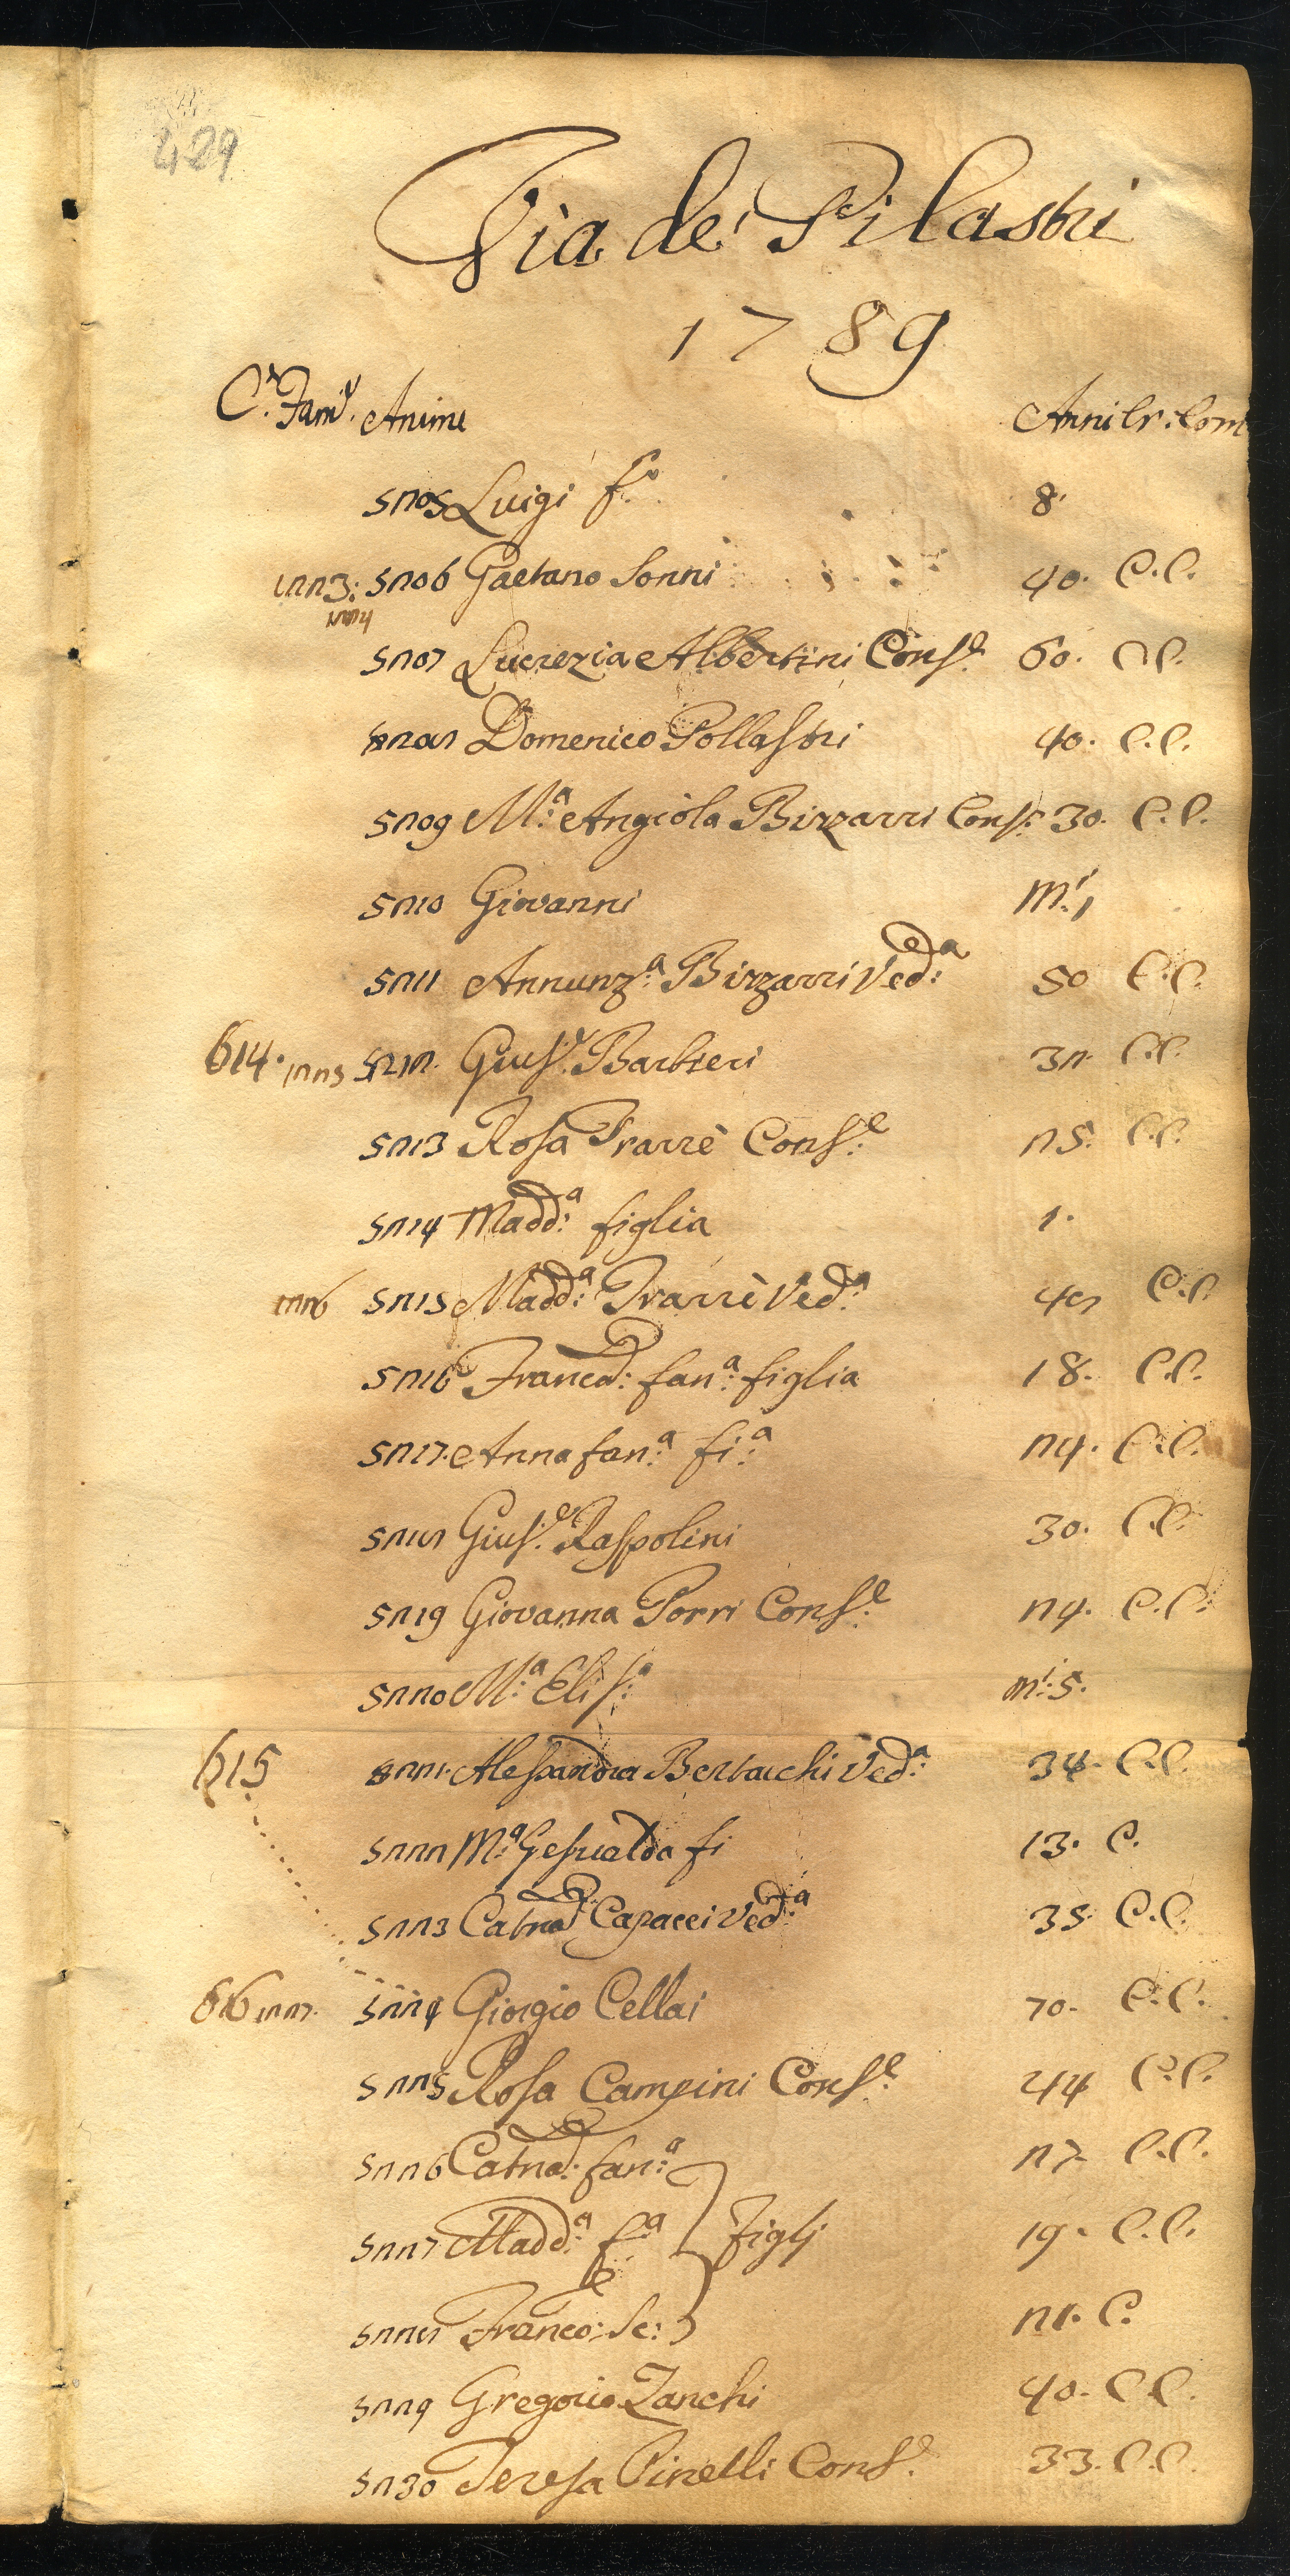 429
Via de' Pilastri
1789
C.e Fam.e Anime Anni Cr: Com
5205 Luigi f.o 8
1223. 5206 Gaetano Sonni 40. C.C.
1224
5207 Lucrezia Albertini Cons.e 60. C.C.
5208 Domenico Pollastri 40. C.C.
5209 M.a Angiola Bizzarri Cons.e 30. C.C.
5210 Giovanni M.i 1
5211 Annunz.a Bizzarri Ved.a 50 C.C.
614. 1225 5212. Gius.e Barbieri 32. C.C.
5213 Rosa Trarrè Cons.e 25. C.C.
5214 Madd.a figlia 1.
1226 5215 Madd.a Trarrè Ved.a 48 C.C
5216 Franca: fan.a figlia 18. C.C.
5217. Anna fan.a fi.a 24. C.C.
5218 Gius.e Raspolini 30. C.C.
5219 Giovanna Porri Cons.e 24. C.C.
5220 M.a Elis.a m.i 5.
615 5221. Alessandra Bertacchi Ved.a 34. C.C.
5222 M.a Gesualda fi 13. C.
5223 Catna Capacci Ved.a 35. C.C.
616 1227. 5224 Giorgio Cellai 70. C.C.
5225 Rosa Campini Cons.e 44 C.C.
5226 Catna: fan.a 27. C.C.
5227 Madd.a f.a figlj 19. C.C.
5228 Franco: Se: 21. C.
5229 Gregorio Zanchi 40. C.C.
5230 Teresa Pinelli Cons.e 33. C.C.